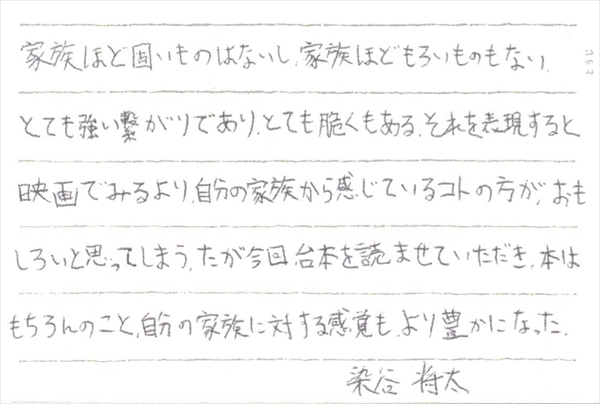 家族ほど固いものはないし、家族ほどもろいものもない。
とても強い繋がりであり、とても脆くもある。それを表現すると
映画でみるより、自分の家族から感じているコトの方が、おも
しろいと思ってしまう。たが今回台本を読ませていただき、本は
もちろんのこと、自分の家族に対する感覚も、より豊かになった。
染谷 将太